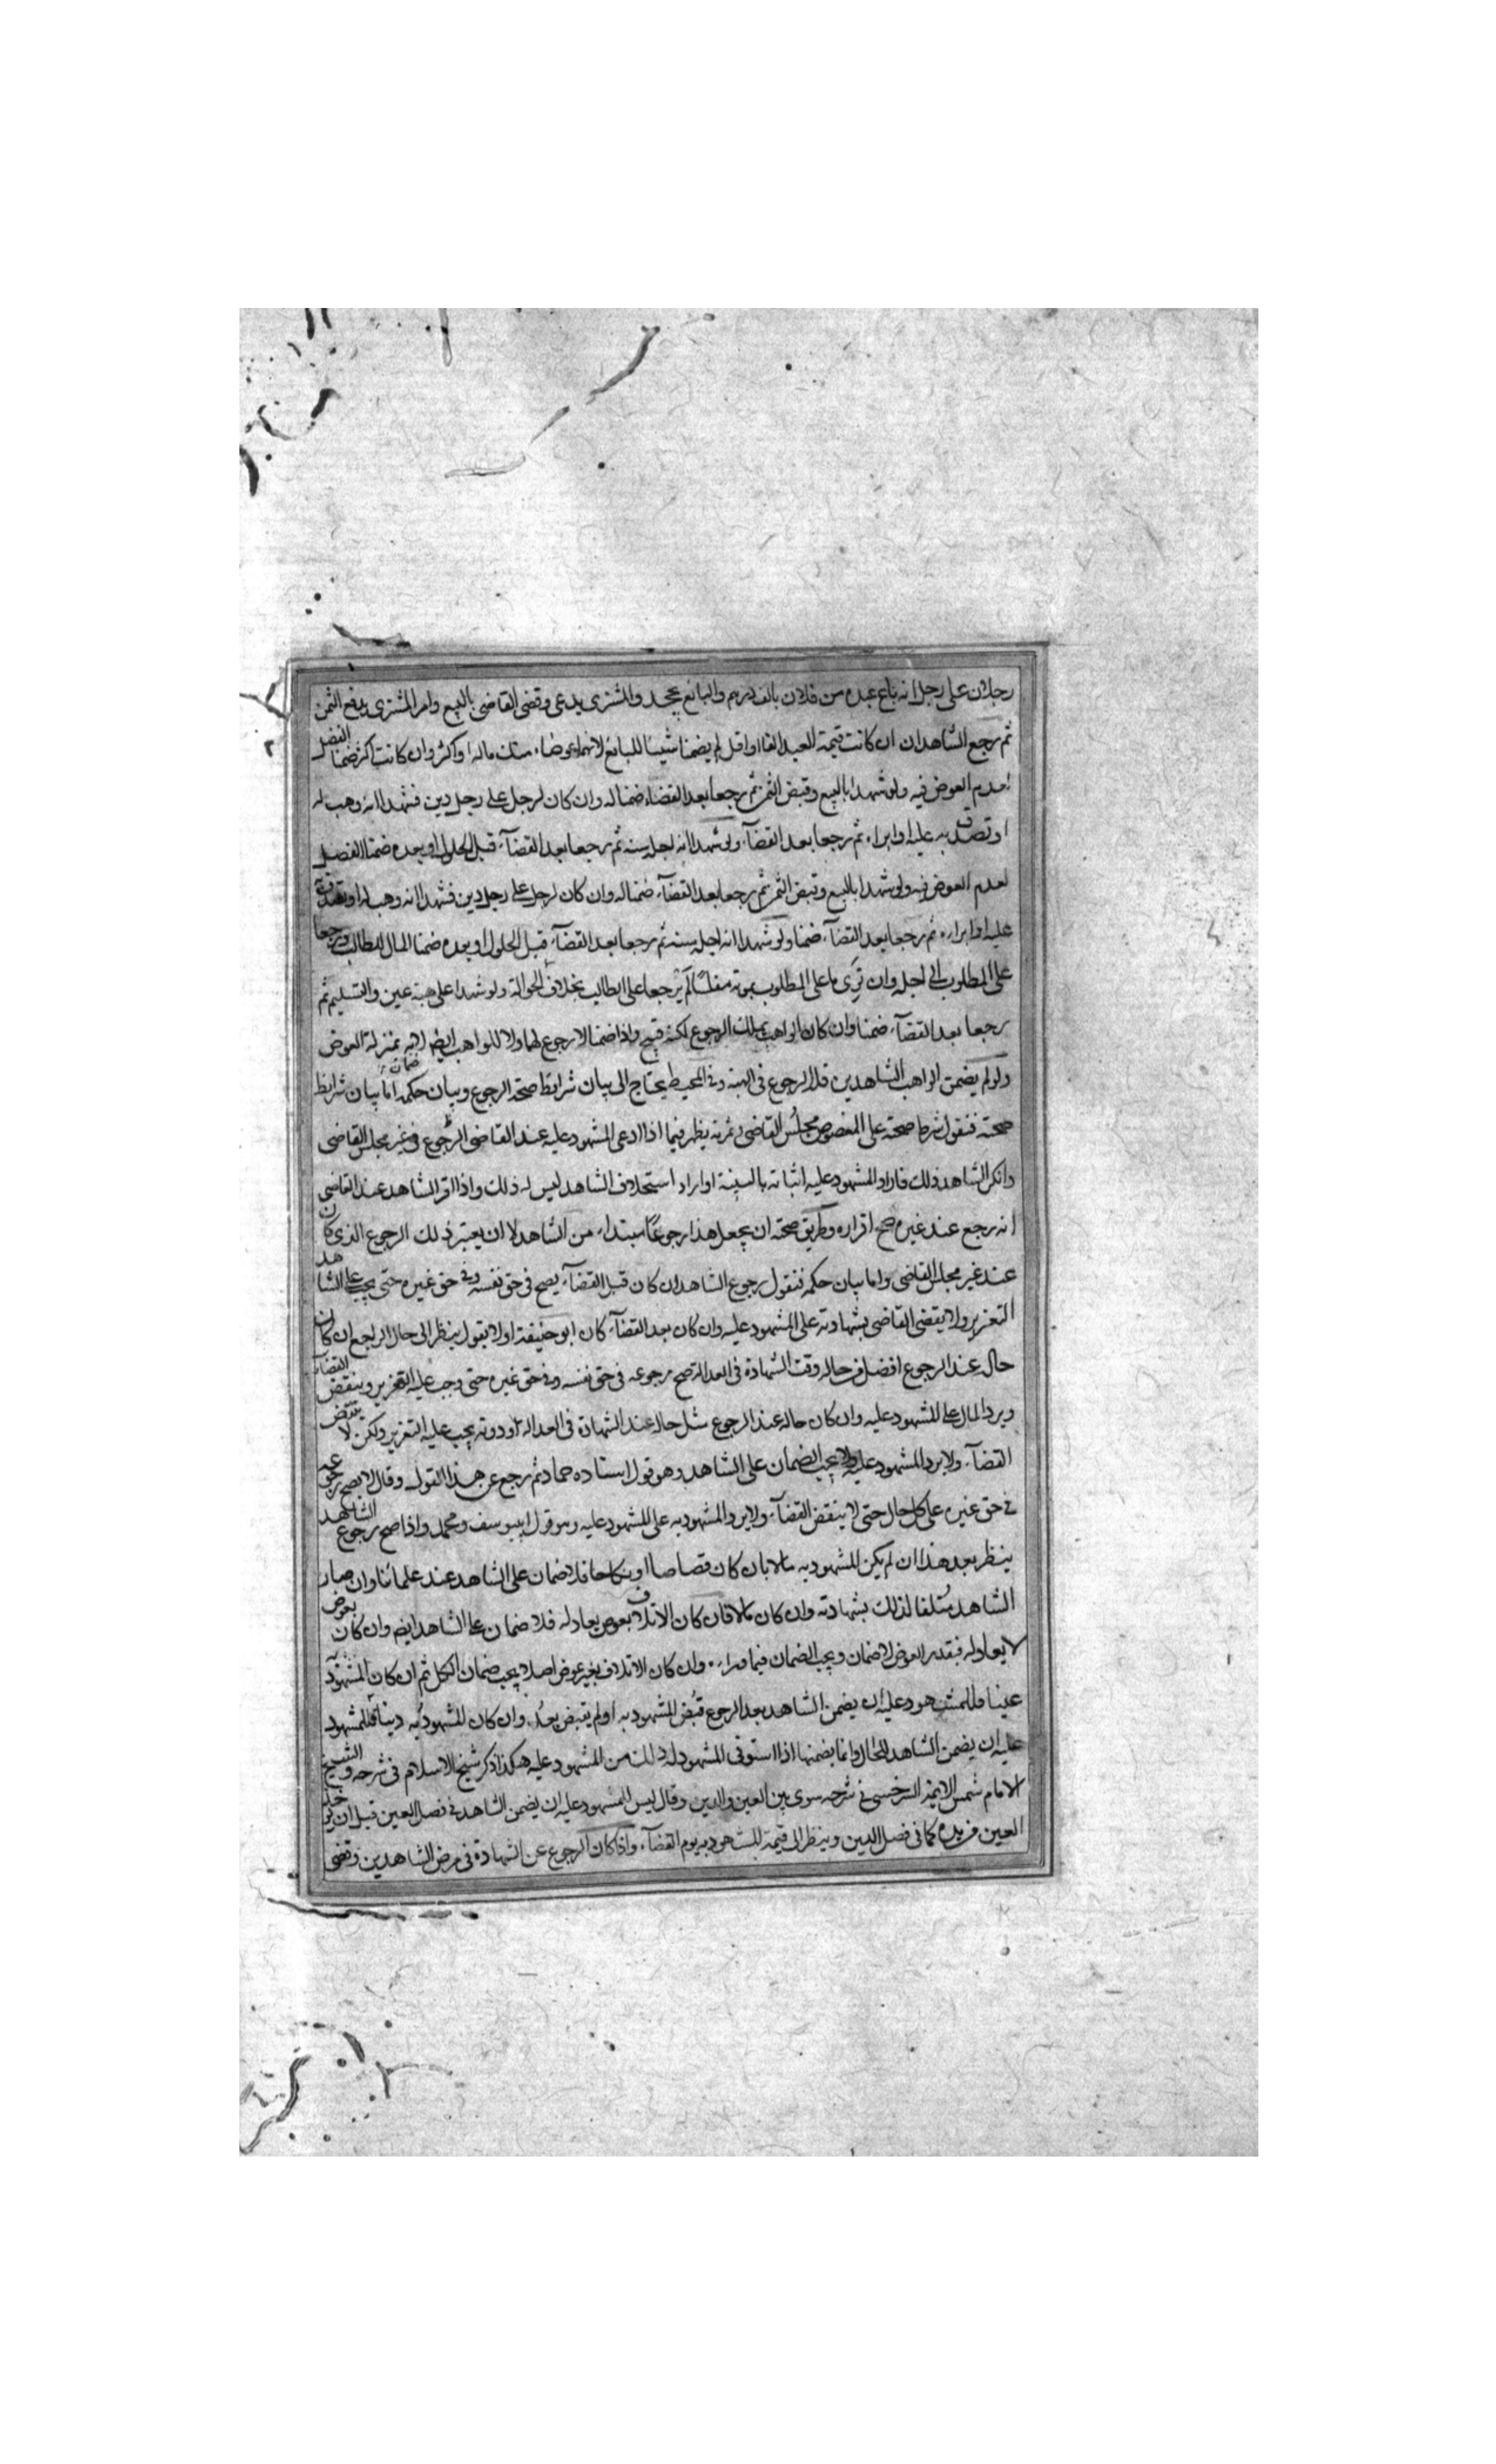 رجلان على رجل انه باع عبده من فلان بالف درهم والبائع يجحد والمشترى يدعى وقضى القاضى بالبيع وامر المشترى بدفع الثمن
ثم رجع الشاهدان ان كانت قيمة العبد الفا او اقل لم يضمنا شيئا للبائع لانهما عوضاه مثل ماله او اكثر وان كانت اكثر ضمنا الفضل
لعدم العوض فيه ولو شهدا بالبيع وقبض الثمن ثم رجعا بعد القضاء ضمنا له وان كان لرجل على رجل دين فشهدا انه وهب له
او تصدق به عليه او ابراه ثم رجعا بعد القضآء ولو شهدا انه اجله سنه ثم رجعا بعد القضآء قبل الحلول او بعده ضمنا الفضل
لعدم العوض فيه ولو شهدا بالبيع وقبض الثمن ثم رجعا بعد القضآء ضمنا له وان كان لرجل على رجل دين فشهدا انه وهب له او تصدق به
عليه او ابراه ثم رجعا بعد القضآء ضمنا ولو شهدا انه اجله سنه ثم رجعا بعد القضآء قبل الحلول او بعده ضمنا المال للطالب ورجعا
على المطلوب الى اجله وان توى ما على المطلوب بموته مفلسا لم يرجعا على الطالب بخلاف الحوالة ولو شهدا على هبة عين والتسليم ثم
رجعا بعد القضآء ضمنا وان كان الواهب يملك الرجوع لكنه قبيح واذا ضمنا لا رجوع لهما ولا للواهب ايضا لانه بمنزلة العوض
ولو لم يضمن الواهب الشاهدين فله الرجوع فى الهبة وفى المحيط يحتاج الى بيان شرايط صحة الرجوع وبيان حكمه ضمان اما بيان شرايط
صحته فنقول شرط صحته على الخصوص مجلس القاضى وثمرته يظهر فيما اذا ادعى المشهود عليه عند القاضى الرجوع فى غير مجلس القاضى
وانكر الشاهد ذلك فاراد المشهود عليه اثباته بالبينة او اراد استحلاف الشاهد ليس له ذلك واذا اقر الشاهد عند القاضى
انه رجع عند غيره صح اقراره وطريق صحته ان يجعل هذا رجوعا مبتداء من الشاهد لا ان يعتبر ذلك الرجوع الذى كان
عند غير مجلس القاضى واما بيان حكمه فنقول رجوع الشاهد ان كان قبل القضآء يصح فى حق نفسه وفى حق غيره حتى يجب على الشاهد
التعزير ولا يقضى القاضى بشهادته على المشهود عليه وان كان بعد القضآء كان ابو حنيفة اولا يقول ينظر الى حال الراجع ان كان
حاله عند الرجوع افضل من حاله وقت الشهادة فى العدالة صح رجوعه فى حق نفسه وفى حق غيره حتى وجب عليه التعزير وينقض القضآء
ويرد المال على المشهود عليه وان كان حاله عند الرجوع مثل حاله عند الشهادة فى العدالة او دونه يجب عليه التعزير ولكن لا ينتقض
القضآء ولا يرد المشهود عليه ولا يجب الضمان على الشاهد وهو قول استاده حماد ثم رجع عن هذا القول وقال لا يصح رجوعه
فى حق غيره على كل حال حتى لا ينتقض القضآء ولا يرد المشهود به على المشهود عليه وهو قول ابى يوسف ومحمد واذا صح رجوع الشاهد
ينظر بعد هذا ان لم يكن المشهود به مالا بان كان قصاصا او نكاحا فلا ضمان على الشاهد عند علمائنا وان صار
الشاهد متلفا لذلك بشهادته وان كان مالا فان كان الاتلاف بعوض يعادله فلا ضمان على الشاهد ايضا وان كان بعوض
لا يعادله فبقدر العوض لا ضمان ويجب الضمان فيما وراءه وان كان الاتلاف بغير عوض اصلا يجب ضمان الكل ثم ان كان المشهود به
عينا فللمشهود عليه ان يضمن الشاهد بعد الرجوع قبض المشهود به او لم يقبض بعد وان كان المشهود به دينا فللمشهود
عليه ان يضمن الشاهد للحال وانما يضمنها اذا استوفى المشهود له ذلك من المشهود عليه هكذا ذكر شيخ الاسلام فى شرحه والشيخ
الامام شمس الايمة السرخسى فى شرحه سوى بين العين والدين وقال ليس للمشهود عليه ان يضمن الشاهد فى فصل العين قبل ان
العين من يده كما فى فصل الدين وينظر الى قيمة المشهود به يوم القضآء واذا كان الرجوع عن الشهادة فى مرض الشاهدين وقضى